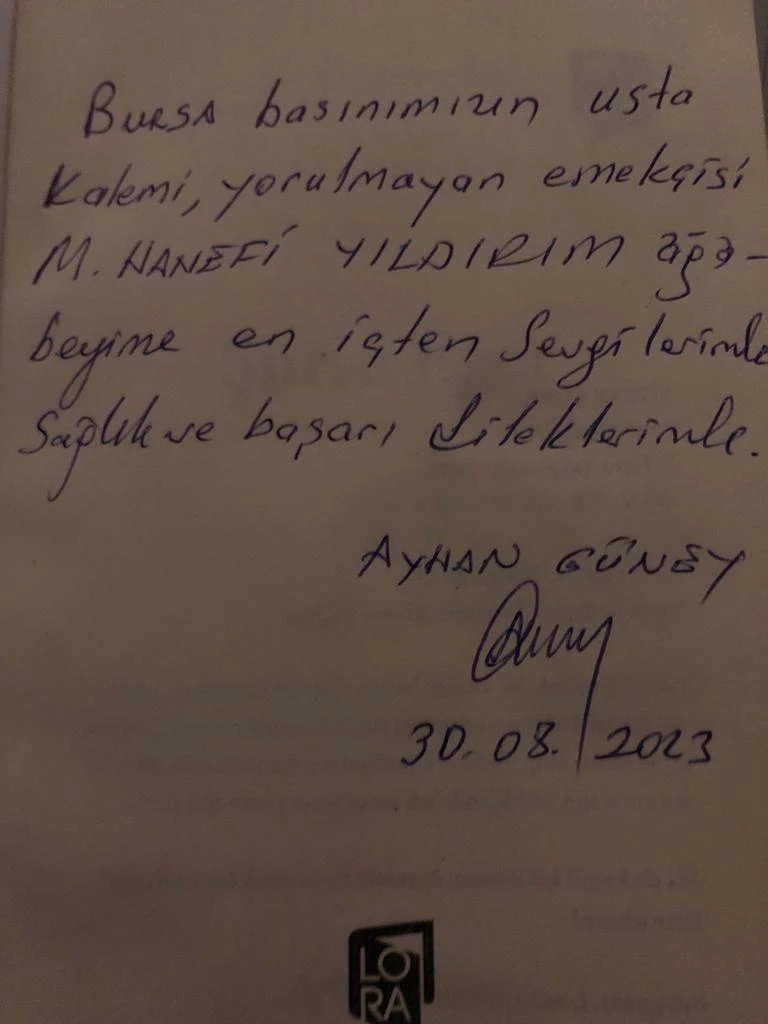 BURSA basınımızın usta
kalemi, yorulmayan emekçisi
M. HANEFİ YILDIRIM ağa-
beyime en içten Sevgilerimle
Sağlık ve başarı dileklerimle.
AYHAN GÜNEY
30.08.2023
LO
RA